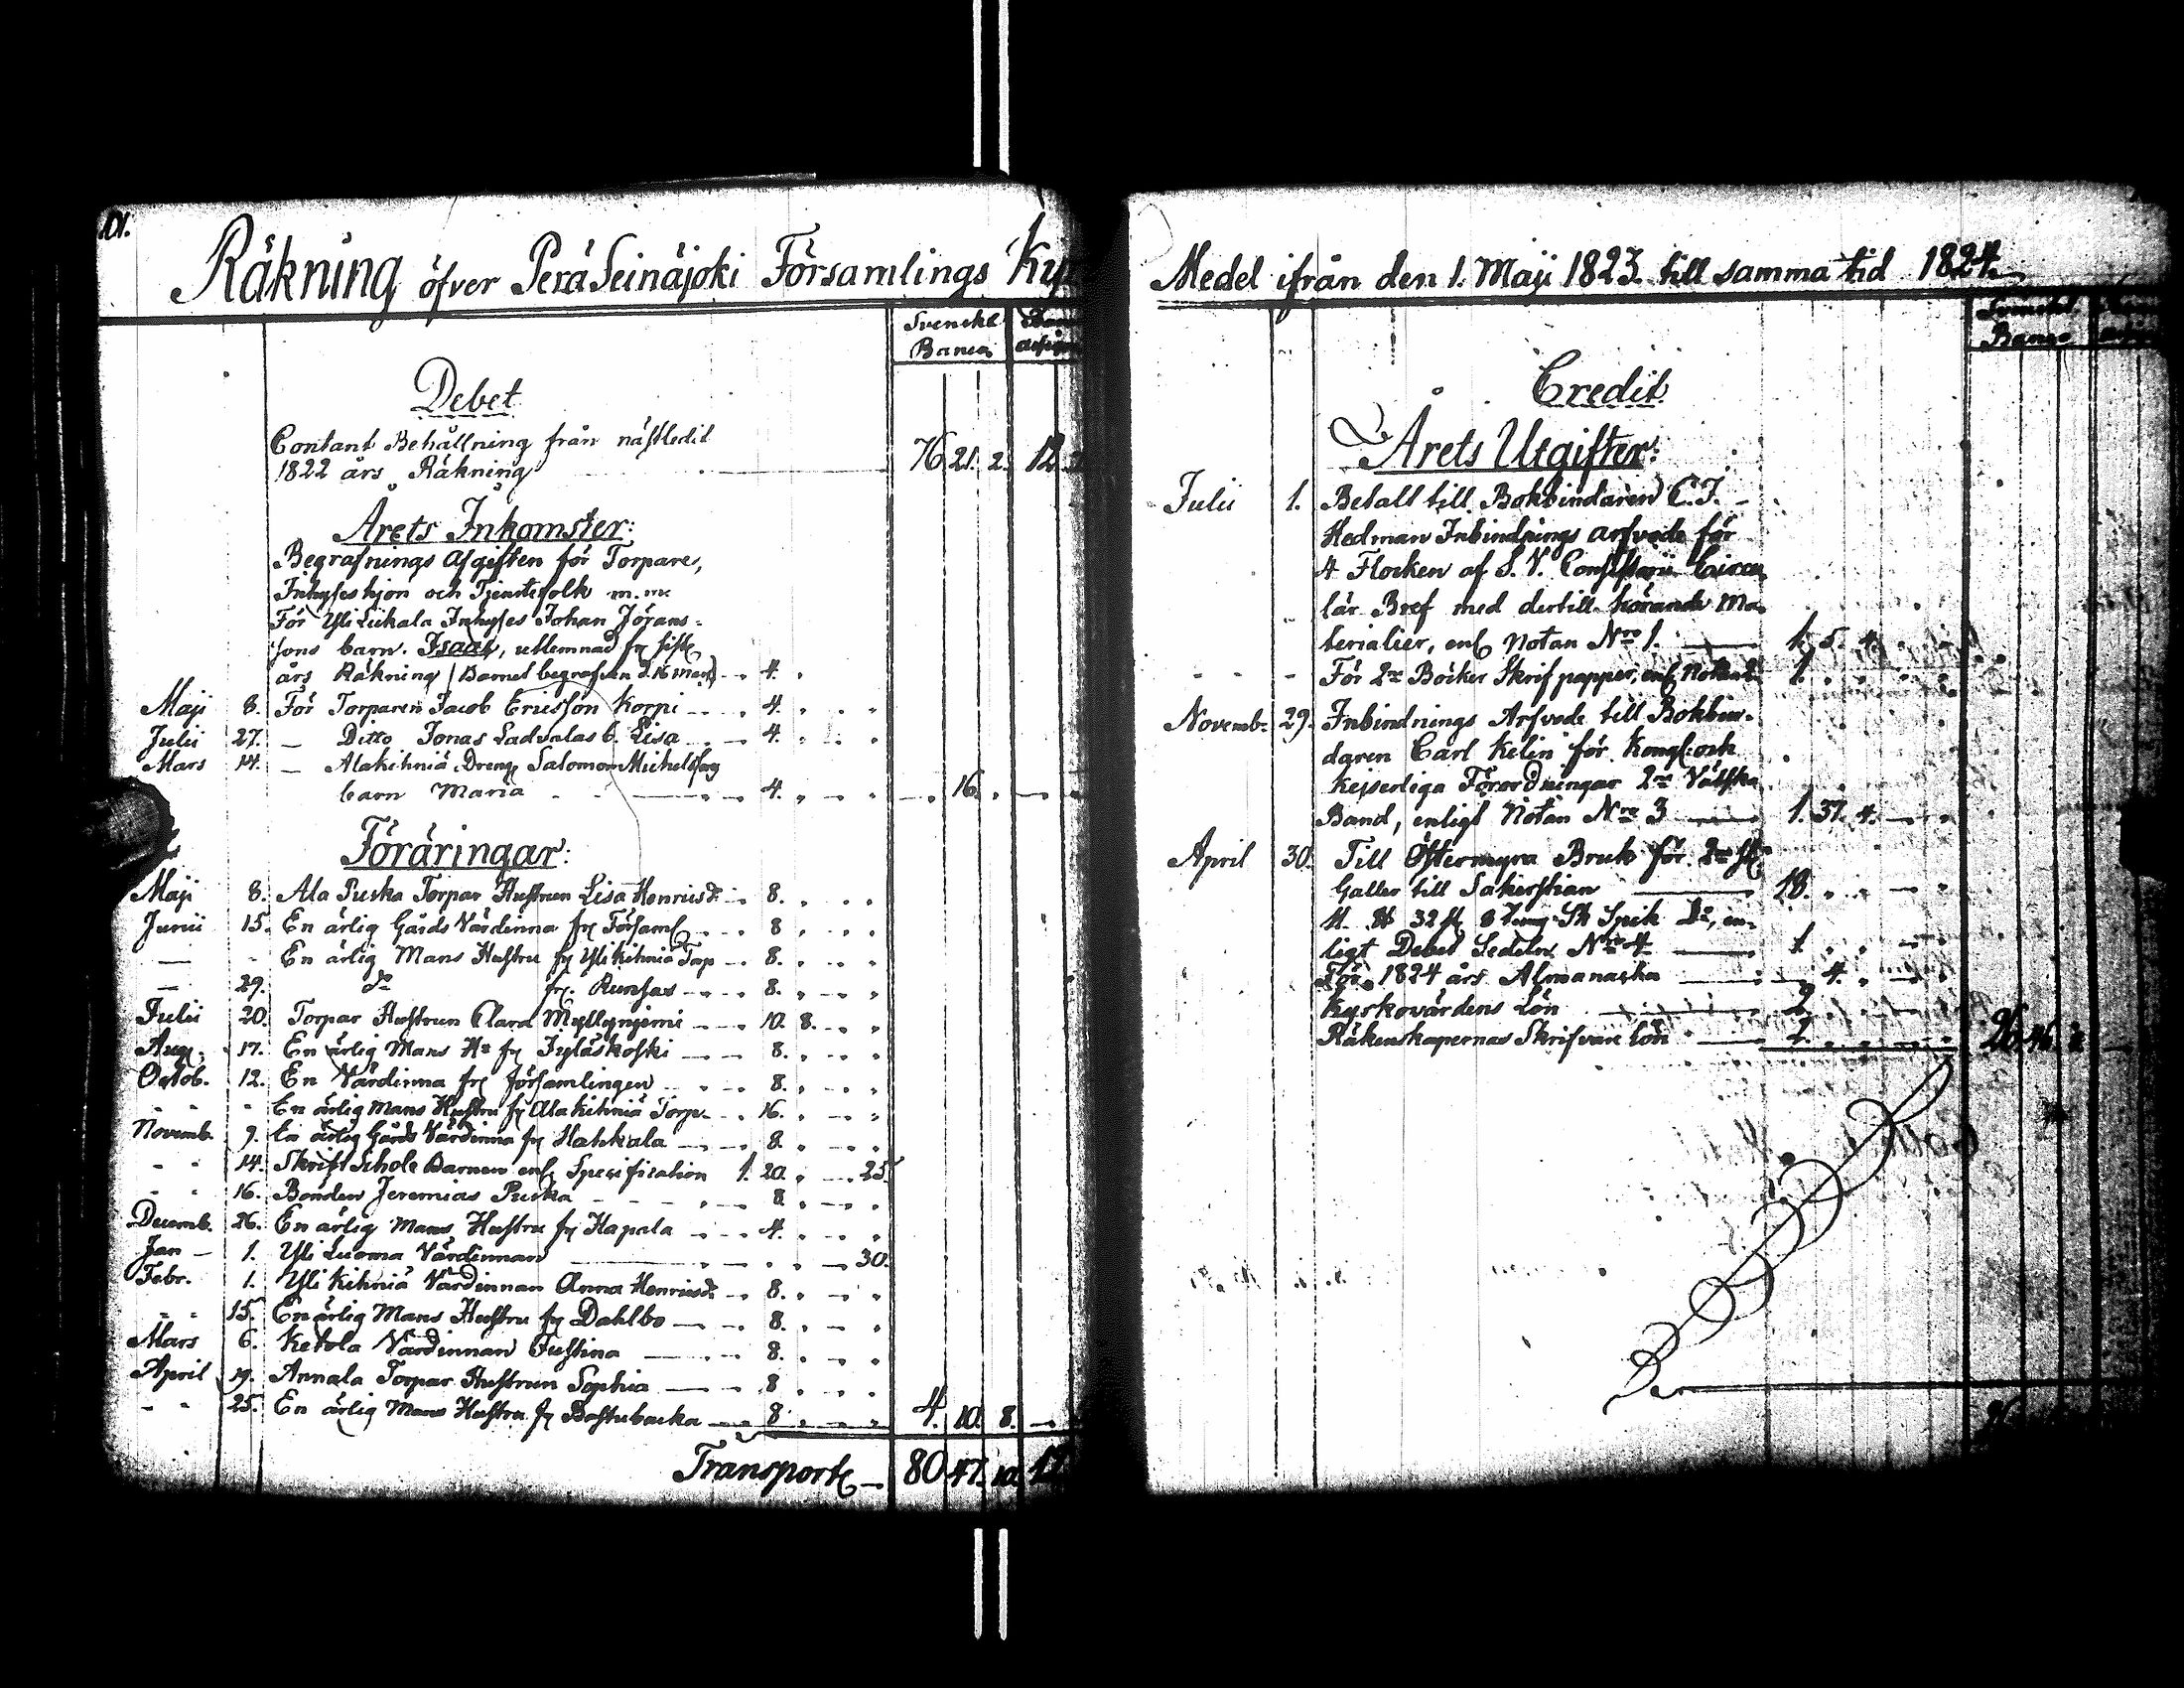 101.
Räkning öfver PeräSeinäjoki Församlings Ky
Svenskt
Banco
Debet
Contant Behållning från nästledit
1822 års Räkning 76 21. 2. 12
Årets Inkomster:
Begrafnings Afgiften för Torpare,
Inhyseshjon och Tjenstefolk m.m.
För Yli Liikala Inhyses Johan Jörans-
sons barn. Isaac, utlemnad
års Räkning / Barnet begrafven d. 16 Mars) 4.
Maji 8. För Torparen Jacob Ericsson Korpi 4.
Julii 27. Ditto Jonas Ladvalas b. Lisa 4.
Mars 14. Alakihniä Dreng Salomon Michelss
barn Maria 4. 16.
Föräringar:
Maji 8. Ala Puska Torpar Hustrun Lisa Henricsdr 8.
Junii 15. En ärlig Gårds Värdinna fr Församl 8
- En ärlig Mans Hustru fr Yli Kihniä Torp 8.
29. do fr. Runsas 8.
Julii 20. Torpar Hustrun Clara Myllyniemi 10. 8.
Aug. 17. En ärlig Mans Hu fr Jyläskoski 8.
Octob. 12. En Värdinna fr församlingen 8.
- En ärlig Mans Hustru fr Alakihniä Torp. 16.
Novemb. 9. En ärlig Gårds Värdinna fr Hahkala 8.
14. Skrift Schole Barnen enl Specification 1. 20. 25.
16. Bonden Jeremias Puska 8
Decemb. 26. En ärlig Mans Hustru fr Hapala 4.
Jan 1. Yli Luoma Värdinnan 30.
Febr. 1. Yli Kihniä Värdinnan Anna Henricsdr 8.
15. En ärlig Mans Hustru fr Dahlbo 8.
Mars 6. Ketola Värdinnan Justina 8.
April 19. Annala Torpar Hustrun Sophia 8
25. En ärlig Mans Hustru fr Bastubacka 8 4. 10. 8.
Transport 80 47. 10. 12
Medel ifrån den 1. Maji 1823 till samma tid 1824
Svenskt
Banco
Credit
Årets Utgifter:
Julii 1. Betalt till Bokbindaren C. J.
Hedman Inbindnings arfvode för
4 Flocken af S. V. Consistorii Circu
lär Bref med dertill hörande Ma-
terialier, enl Notan Nro 1. 1. 5. 4.
- För 2ne Böcker Skrif papper, enl Notan 2 1.
Novemb. 29. Inbindnings Arfvode till Bokbin-
daren Carl Kelin för Kongl. och
Kejserliga Förordningar 2ne Välska
Band, enligt Notan Nro 3 1. 37. 4.
April 30. Till Östermyra Bruk för 2ne st
Galler till Sakerstian 18.
32 st 8 tum Spik do, en-
ligt Debet Sedelen Nro 4 1.
För 1824 års Almanacka 4.
Kyrkovärdens Lön 2
Räkenskapernas Skrifvare lön 2. 26